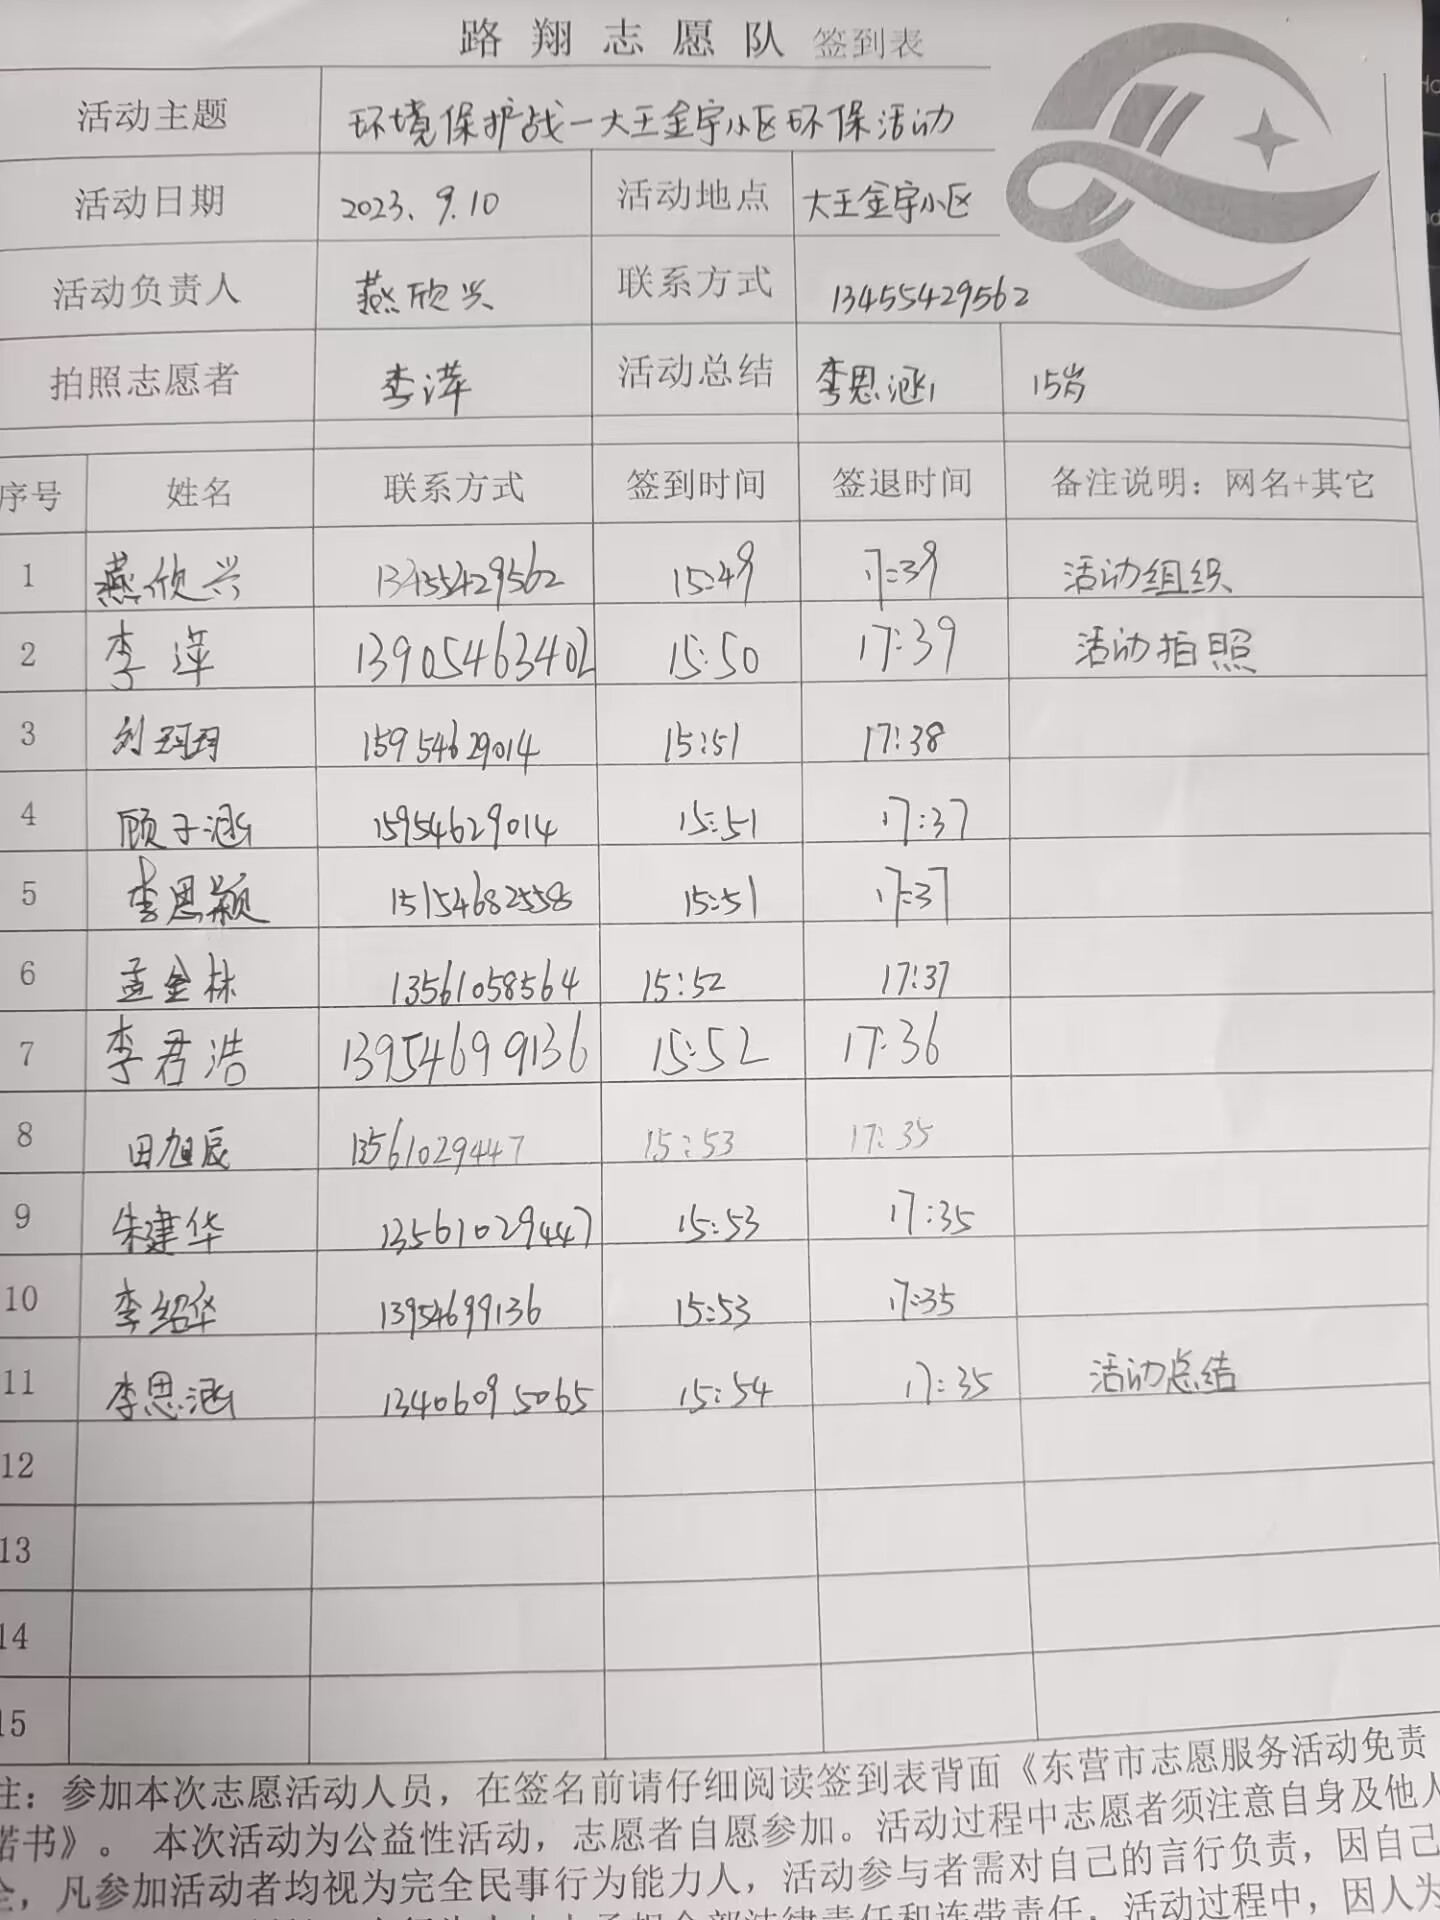 路翔志愿队 签到表
活动主题 环境保护战一大王金宇小区环保活动
活动日期 2023.9.10 活动地点 大王金宇小区
活动负责人 燕欣兴 联系方式 13455429562
拍照志愿者 李萍 活动总结 李思涵 15岁
序号 姓名 联系方式 签到时间 签退时间 备注说明：网名+其它
1 燕欣兴 13455429562 15:49 17:39 活动组织
2 李萍 13905463402 15:50 17:39 活动拍照
3 刘珂珂 15954629014 15:51 17:38
4 顾子涵 15954629014 15:51 17:37
5 李思颖 15154682558 15:51 17:37
6 孟金林 13561058564 15:52 17:37
7 李君浩 13954699136 15:52 17:36
8 田旭辰 13561029447 15:53 17:35
9 朱建华 13561029447 15:53 17:35
10 李绍华 13954699136 15:53 17:35
11 李思涵 13406095065 15:54 17:35 活动总结
12
13
14
15
注：参加本次志愿活动人员，在签名前请仔细阅读签到表背面《东营市志愿服务活动免责
诺书》。 本次活动为公益性活动，志愿者自愿参加。活动过程中志愿者须注意自身及他人
全，凡参加活动者均视为完全民事行为能力人，活动参与者需对自己的言行负责，因自己
承担全部法律责任和连带责任。活动过程中，因人为